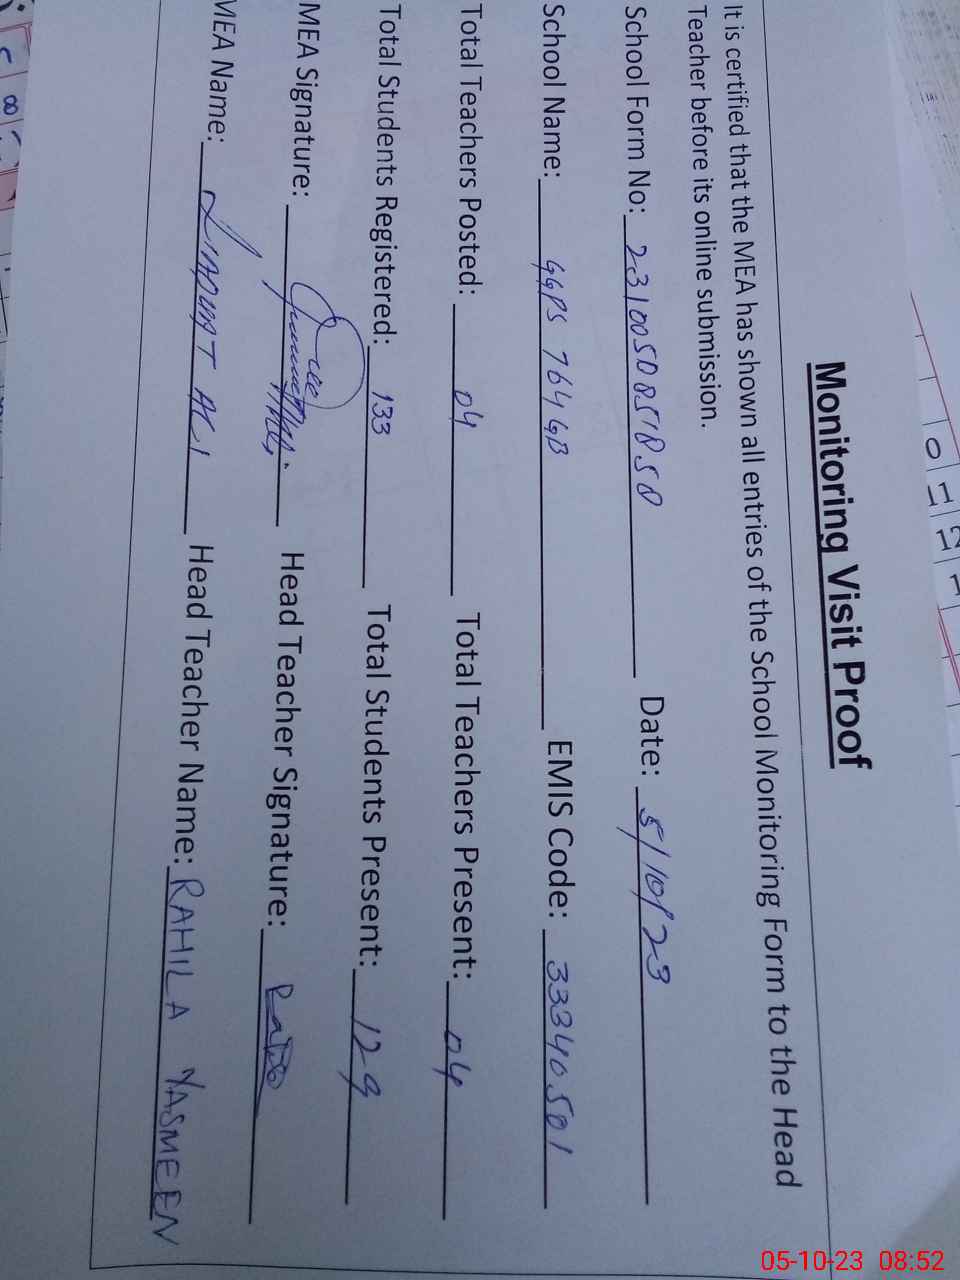 Monitoring Visit Proof
It is certified that the MEA has shown all entries of the School Monitoring Form to the Head
Teacher before its online submission.
School Form No: 231005085850 Date: 5/10/23
School Name: GGPS 764 GB EMIS Code: 33340501
Total Teachers Posted: 04 Total Teachers Present: 04
Total Students Registered: 133 Total Students Present: 129
MEA Signature: Head Teacher Signature:
MEA Name: LIAQUAT ALI Head Teacher Name: RAHILA YASMEEN
05-10-23 08:52